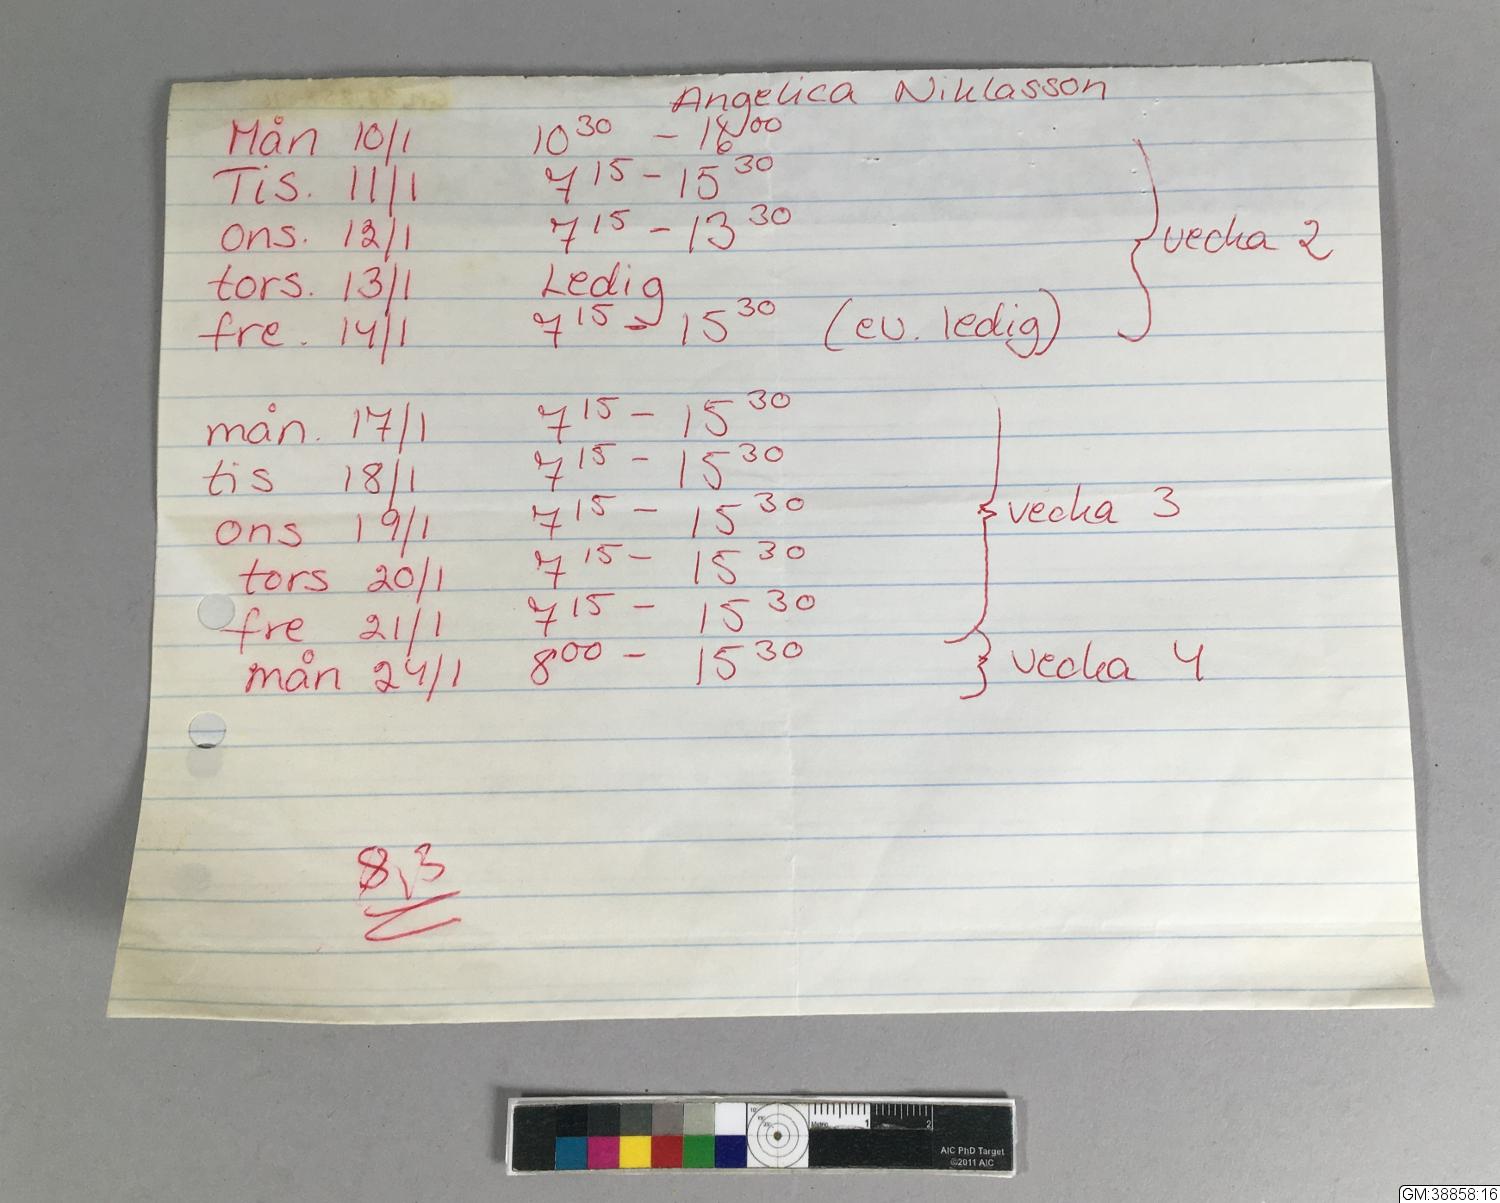 Angelica Niklasson
Mån 10/1 10³⁰ - 16⁰⁰
Tis. 11/1 7¹⁵ - 15³⁰
ons. 12/1 7¹⁵ - 13³⁰ vecka 2
tors. 13/1 Ledig
fre. 14/1 7¹⁵ - 15³⁰ (ev. ledig)
mån. 17/1 7¹⁵ - 15³⁰
tis 18/1 7¹⁵ - 15³⁰
ons 19/1 7¹⁵ - 15³⁰ vecka 3
tors 20/1 7¹⁵ - 15³⁰
fre 21/1 7¹⁵ - 15³⁰
mån 24/1 8⁰⁰ - 15³⁰ vecka 4
8,3
1 2
AIC PhD Target
©2011 AIC
GM:38858:16